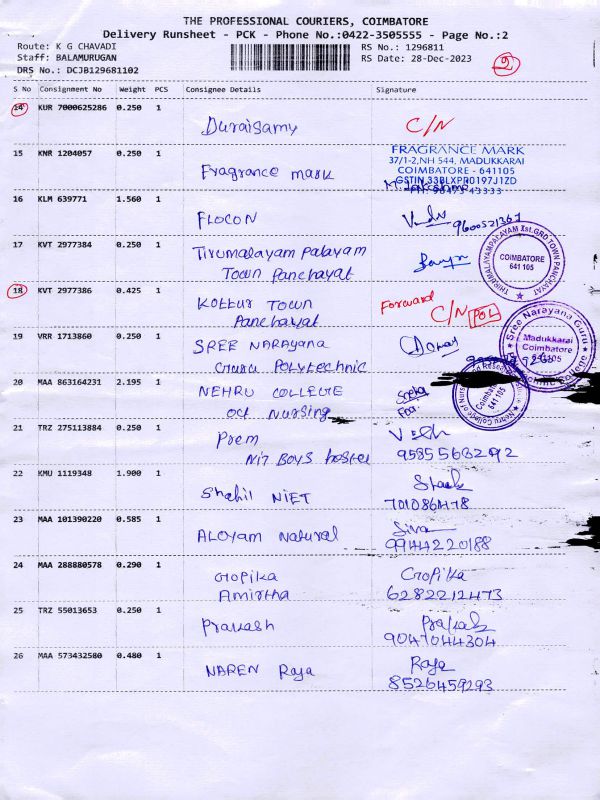 THE PROFESSIONAL COURIERS, COIMBATORE
Delivery Runsheet - PCK - Phone No.:0422-3505555 - Page No.:2
Route: K G CHAVADI
RS No.: 1296811
Staff: BALAMURUGAN
RS Date: 28-Dec-2023
DRS No.: DCJB129681102
2
S No Consignment No Weight PCS Consignee Details Signature
14 KUR 7000625286 0.250 1
Duraisamy C/N
15 KNR 1204057 0.250 1
Fragrance mark
FRAGRANCE MARK
37/1-2,NH 544, MADUKKARAI
COIMBATORE - 641105
GSTIN 33BLXPR0197J1ZD
16 KLM 639771 1.560 1
FLOCON
9600521367
17 KVT 2977384 0.250 1
Tirumalayam Palayam
Town Panchayat
THIRUMALAYAMPALAYAM Ist.GRD TOWN PANCHAYAT
COIMBATORE
641 105
18 KVT 2977386 0.425 1
Kottur Town
Panchayat
Forward
C/N POL
19 VRR 1713860 0.250 1
SREE NARAYANA
Guru POLYTECHNIC
Sree Narayana Guru
Madukkarai
Coimbatore
641105
20 MAA 863164231 2.195 1
NEHRU COLLEGE
OF Nursing
Nehru College of Nursing
Coimbatore
641 105
21 TRZ 275113884 0.250 1
Prem
NIT BOYS hostel
9585568292
22 KMU 1119348 1.900 1
Shahil NIET
23 MAA 101390220 0.585 1
ALOYAM Natural
Siva
9944220188
24 MAA 288880578 0.290 1
Gopika
Amirtha
Gopika
6282212473
25 TRZ 55013653 0.250 1
Prakash
Prakash
9047044304
26 MAA 573432580 0.480 1
NAREN Raja
Raja
8526459293